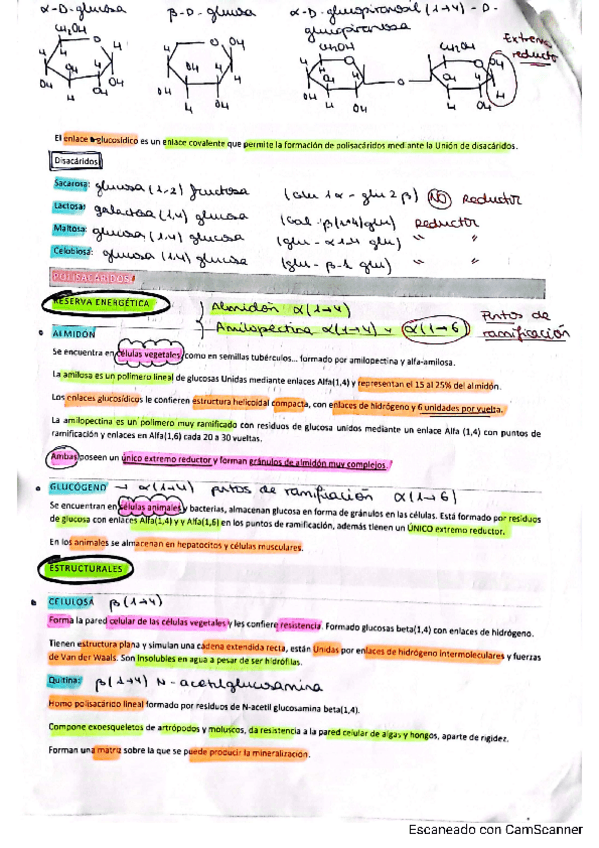 α-D-glucosa β-D-glucosa α-D-glucopiranosil (1→4)-D-
glucopiranosa
CH₂OH O H OH
CH₂OH CH₂OH
Extremo
reductor
El enlace o-glucosídico es un enlace covalente que permite la formación de polisacáridos mediante la Unión de disacáridos.
Disacáridos
Sacarosa: glucosa (1-2) fructosa (Glu 1α - glu 2β) NO Reductor
Lactosa: galactosa (1,4) glucosa (Gal β(1→4) glu) Reductor
Maltosa: glucosa (1,4) glucosa (glu - α 1→4 glu) " "
Celobiosa: glucosa (1,4) glucosa (glu - β-1 glu) " "
POLISACÁRIDOS
RESERVA ENERGÉTICA Almidón α(1→4)
Amilopectina α(1→4) y α(1→6) Puntos de
ramificación
ALMIDÓN
Se encuentra en células vegetales, como en semillas tubérculos... formado por amilopectina y alfa-amilosa.
La amilosa es un polímero lineal de glucosas Unidas mediante enlaces Alfa(1,4) y representan el 15 al 25% del almidón.
Los enlaces glucosídicos le confieren estructura helicoidal compacta, con enlaces de hidrógeno y 6 unidades por vuelta.
La amilopectina es un polímero muy ramificado con residuos de glucosa unidos mediante un enlace Alfa (1,4) con puntos de
ramificación y enlaces en Alfa(1,6) cada 20 a 30 vueltas.
Ambas poseen un único extremo reductor y forman gránulos de almidón muy complejos.
GLUCÓGENO → α(1→4) puntos de ramificación α(1→6)
Se encuentran en células animales y bacterias, almacenan glucosa en forma de gránulos en las células. Está formado por residuos
de glucosa con enlaces Alfa(1,4) y y Alfa(1,6) en los puntos de ramificación, además tienen un ÚNICO extremo reductor.
En los animales se almacenan en hepatocitos y células musculares.
ESTRUCTURALES
CELULOSA β(1→4)
Forma la pared celular de las células vegetales y les confiere resistencia. Formado glucosas beta(1,4) con enlaces de hidrógeno.
Tienen estructura plana y simulan una cadena extendida recta, están Unidas por enlaces de hidrógeno intermoleculares y fuerzas
de Van der Waals. Son Insolubles en agua a pesar de ser hidrófilas.
Quitina: β(1→4) N-acetilglucosamina
Homo polisacárido lineal formado por residuos de N-acetil glucosamina beta(1,4).
Compone exoesqueletos de artrópodos y moluscos, da resistencia a la pared celular de algas y hongos, aparte de rigidez.
Forman una matriz sobre la que se puede producir la mineralización.
Escaneado con CamScanner